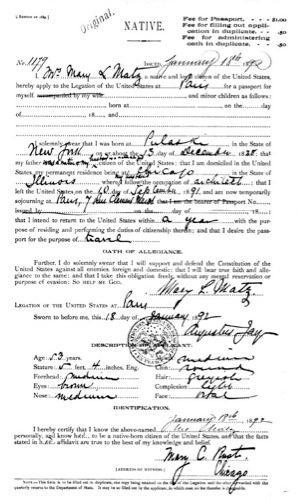 [ Edition of 1889. ]
Original.
NATIVE.
Fee for Passport, - - - - $1.00
Fee for filling out application
in duplicate - - - - .50
Fee for administering
oath in duplicate - - .50
No. 1179 Issued January 18th 1892
I, Mrs Mary L Matz, a native and loyal citizen of the United States,
hereby apply to the Legation of the United States at Paris for a passport for
myself, accompanied by my wife and minor children as follows:
born at on the day
of
I solemnly swear that I was born at Pulaski in the State of
New York on or about the 13 day of December 1838 that my
father citizen of the United States; that I am domiciled in the United
States, my permanent residence being at Chicago in the State of
Illinois where I follow the occupation of architect that I
left the United States on the 10 day of September 1891 and am now temporarily
sojourning at Paris, 7 rue; that I am the bearer of Passport No.
issued by on the day of 18
that I intend to return to the United States within a year with the pur-
pose of residing and performing the duties of citizenship therein; and that I desire the pass-
port for the purpose of travel
OATH OF ALLEGIANCE.
Further, I do solemnly swear that I will support and defend the Constitution of the
United States against all enemies, foreign and domestic; that I will bear true faith and alle-
giance to the same; and that I take this obligation freely, without any mental reservation or
purpose of evasion: So help me God.
Mary L. Matz
Legation of the United States at Paris
Sworn to before me, this 18 day of January 1892
Augustus Jay
DESCRIPTION OF APPLICANT.
Age: 53 years. Mouth: medium
Stature: 5 feet, 4 inches, Eng. Chin: round
Forehead: medium Hair: greyish
Eyes: brown Complexion: light
Nose: medium Face: oval
IDENTIFICATION.
January 18th 1892
I hereby certify that I know the above-named
personally, and know her to be a native-born citizen of the United States, and that the facts
stated in her affidavit are true to the best of my knowledge and belief.
Mary C.
[ADDRESS OF WITNESS.] Chicago